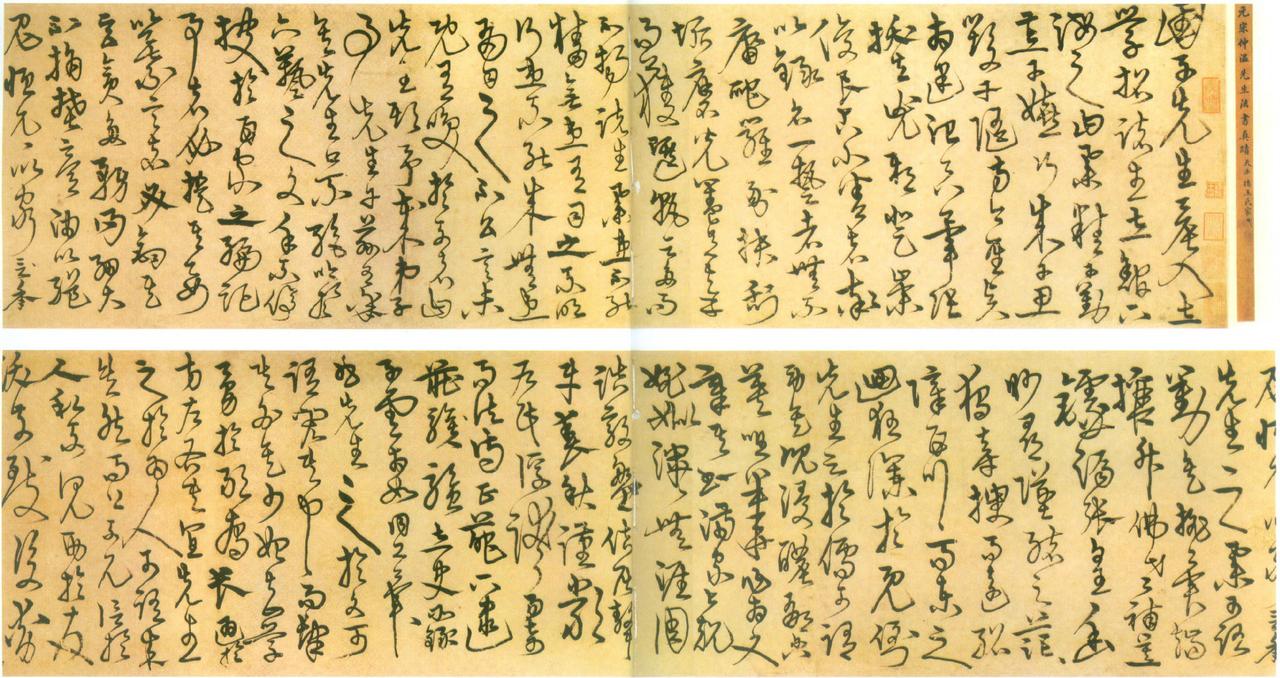 元宋仲温先生法書真蹟
國子先生晨入太
學招諸生立館下
誨之曰業精于勤
荒于嬉行成于思
毀于隨方今聖賢
相逢治具畢張
拔去兇邪登崇
俊良占小善者率
以錄名一藝者無不
庸爬羅剔抉刮
垢磨光蓋有幸
而獲選孰云多而
不揚諸生業患不能
精無患有司之不明
行患不能成無患
有司之不公言未
既有笑於列者曰
先生欺予哉弟子
事先生于茲有年
矣先生口不絕吟於
六藝之文手不停
披於百家之編記
事者必提其要
纂言者必鉤其
玄貪多務得細大
不捐焚膏油以繼
晷恒兀兀以窮年
先生之業可謂
勤矣觝排異端
攘斥佛老補苴
罅漏張皇幽
眇尋墜緒之茫茫
獨旁搜而遠紹
障百川而東之
迴狂瀾於既倒
先生之於儒可謂
勞矣沉浸醲郁含
英咀華作為文
章其書滿家上規
姚姒渾渾無涯周
誥殷盤佶屈聱
牙春秋謹嚴
左氏浮誇易奇
而法詩正而葩下逮
莊騷太史所錄
子雲相如同工異
曲先生之於文可
謂閎其中而肆
其外矣少始知學
勇於敢為長通於
方左右其宜先生
之於為人可謂成
矣然而公不見信於
人私不見助於友
跋前躓後